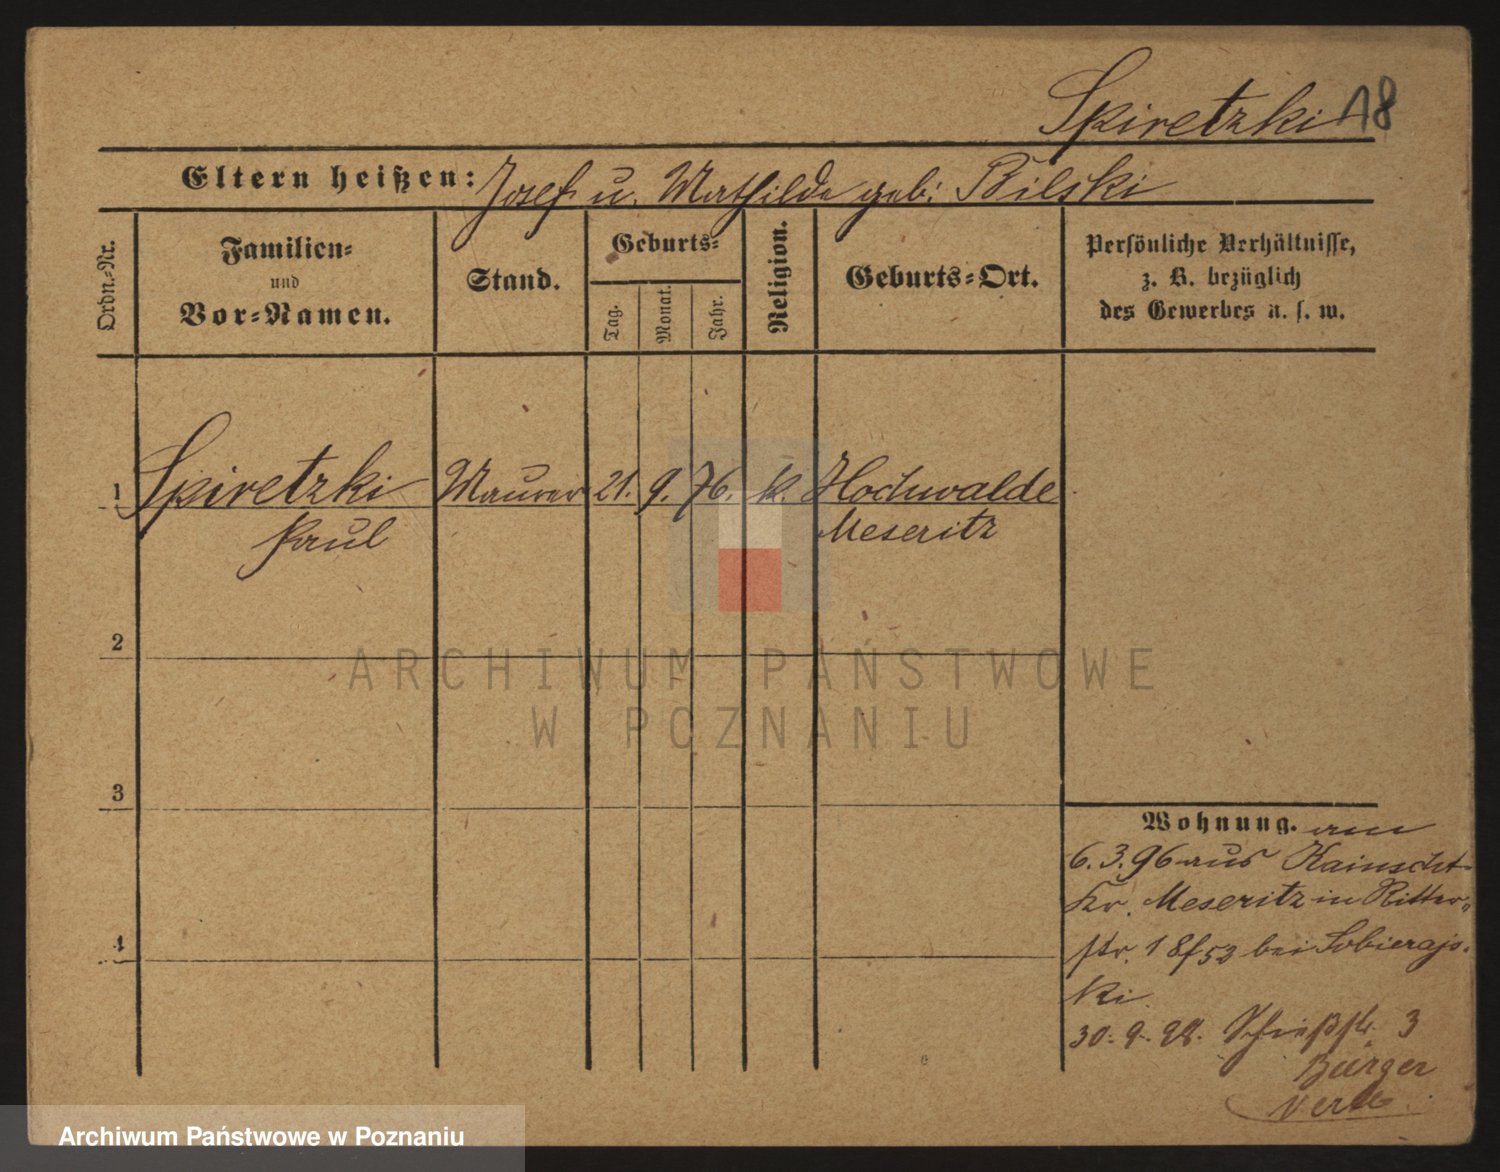 Spiretzki 18
Eltern heißen: Josef u. Mathilde geb: Bilski
Ordn.-Nr.
Familien-
und
Vor-Namen.
Stand.
Geburts-
Tag.
Monat.
Jahr.
Religion.
Geburts-Ort.
Persönliche Verhältnisse,
z. B. bezüglich
des Gewerbes u. s. w.
1 Spiretzki Maurer 21. 9. 76. k. Hochwalde
Paul Meseritz
2
3
4
Wohnung. am
6.3.96 aus Kainscht
Kr. Meseritz in Ritter-
str. 18/52 bei Sobierajs-
ki.
30.9.98. Schießstr. 3
Bürger
ARCHIWUM PAŃSTWOWE
W POZNANIU
Archiwum Państwowe w Poznaniu